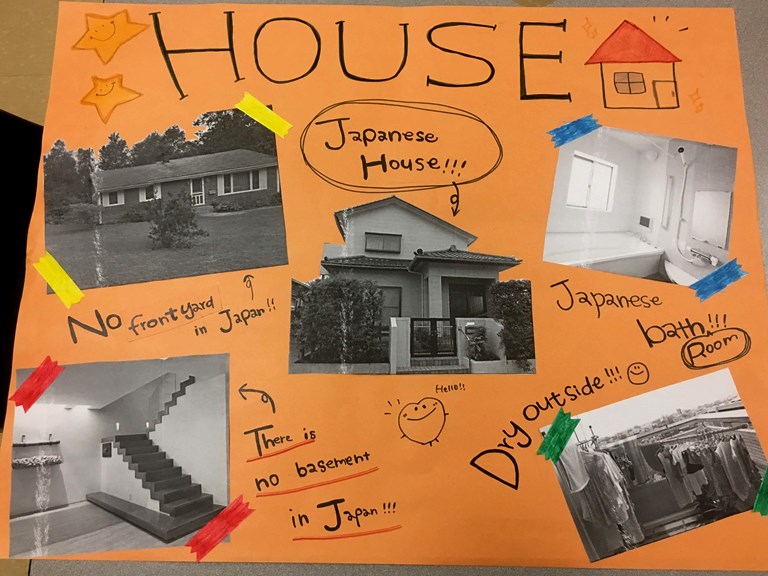 HOUSE
Japanese
House!!!
No front yard
in Japan!!
Japanese
bath!!!
Room
Hello!!
Dry outside!!!
There is
no basement
in Japan!!!